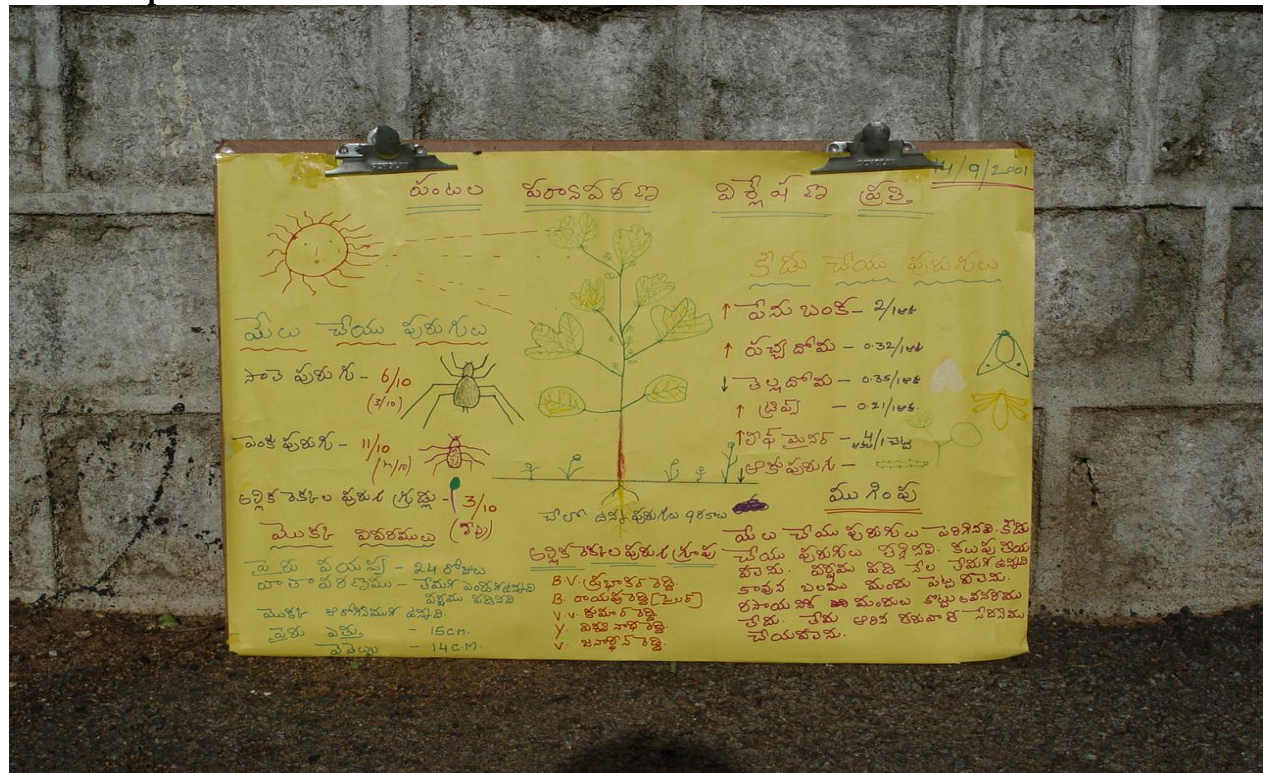 14/9/2001
పంటల పర్యావరణ విశ్లేషణ ప్రత్తి
మేలు చేయు పురుగులు
సాలె పురుగు - 6/10
(3/10)
పెంకి పురుగు - 11/10
అల్లిక రెక్కల పురుగు గ్రుడ్లు - 3/10
మొక్క వివరములు
పైరు వయస్సు - 24 రోజులు
వాతావరణము - తేమగా ఉన్నది
వర్షము పడినది
మొక్క ఆరోగ్యముగా ఉన్నది.
పైరు ఎత్తు - 15cm.
వెడల్పు - 14c.m.
చేలో ఉన్న పురుగులు రకాలు
అల్లిక రెక్కల పురుగు గ్రూపు
B.V. ప్రభాకర్ రెడ్డి.
B. రాయపురెడ్డి
V.V. కుమార్ రెడ్డి.
Y. విశ్వనాథ రెడ్డి.
V. జనార్ధన్ రెడ్డి.
కీడు చేయు పురుగులు
↑ పేను బంక - 2/1ఆకు
↑ పచ్చ దోమ - 0.32/1ఆకు
↓ తెల్లదోమ - 0.35/1ఆకు
↑ త్రిప్స్ - 0.21/1ఆకు.
↑ లీఫ్ మైనర్ - 4 ఆకు/1 చెట్టు
↓ ఆకు పురుగు -
ముగింపు
మేలు చేయు పురుగులు పెరిగినవి. కీడు
చేయు పురుగులు తగ్గినవి. కలుపు తీయ
వలెను. వర్షము పడి నేల తేమగా ఉన్నది
కావున బలము మందు పెట్ట వలెను.
రసాయనిక మందులు కొట్టు అవసరము
లేదు. తేమ ఆరిన తరువాత సేద్యము
చేయవలెను.